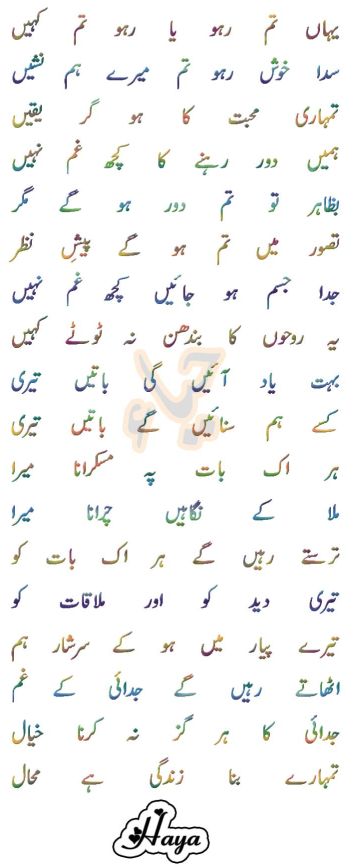 یہاں تم رہو یا رہو تم کہیں
سدا خوش رہو تم میرے ہم نشیں
تمہاری محبت کا ہو گر یقیں
ہمیں دور رہنے کا کچھ غم نہیں
بظاہر تو تم دور ہو گے مگر
تصور میں تم ہو گے پیشِ نظر
جدا جسم ہو جائیں کچھ غم نہیں
یہ روحوں کا بندھن نہ ٹوٹے کہیں
بہت یاد آئیں گی باتیں تیری
کسے ہم سنائیں گے باتیں تیری
ہر اک بات پہ مسکرانا میرا
ملا کے نگاہیں چرانا میرا
ترستے رہیں گے ہر اک بات کو
تیری دید کو اور ملاقات کو
تیرے پیار میں ہو کے سرشار ہم
اٹھاتے رہیں گے جدائی کے غم
جدائی کا ہر گز نہ کرنا خیال
تمہارے بنا زندگی ہے محال
Haya